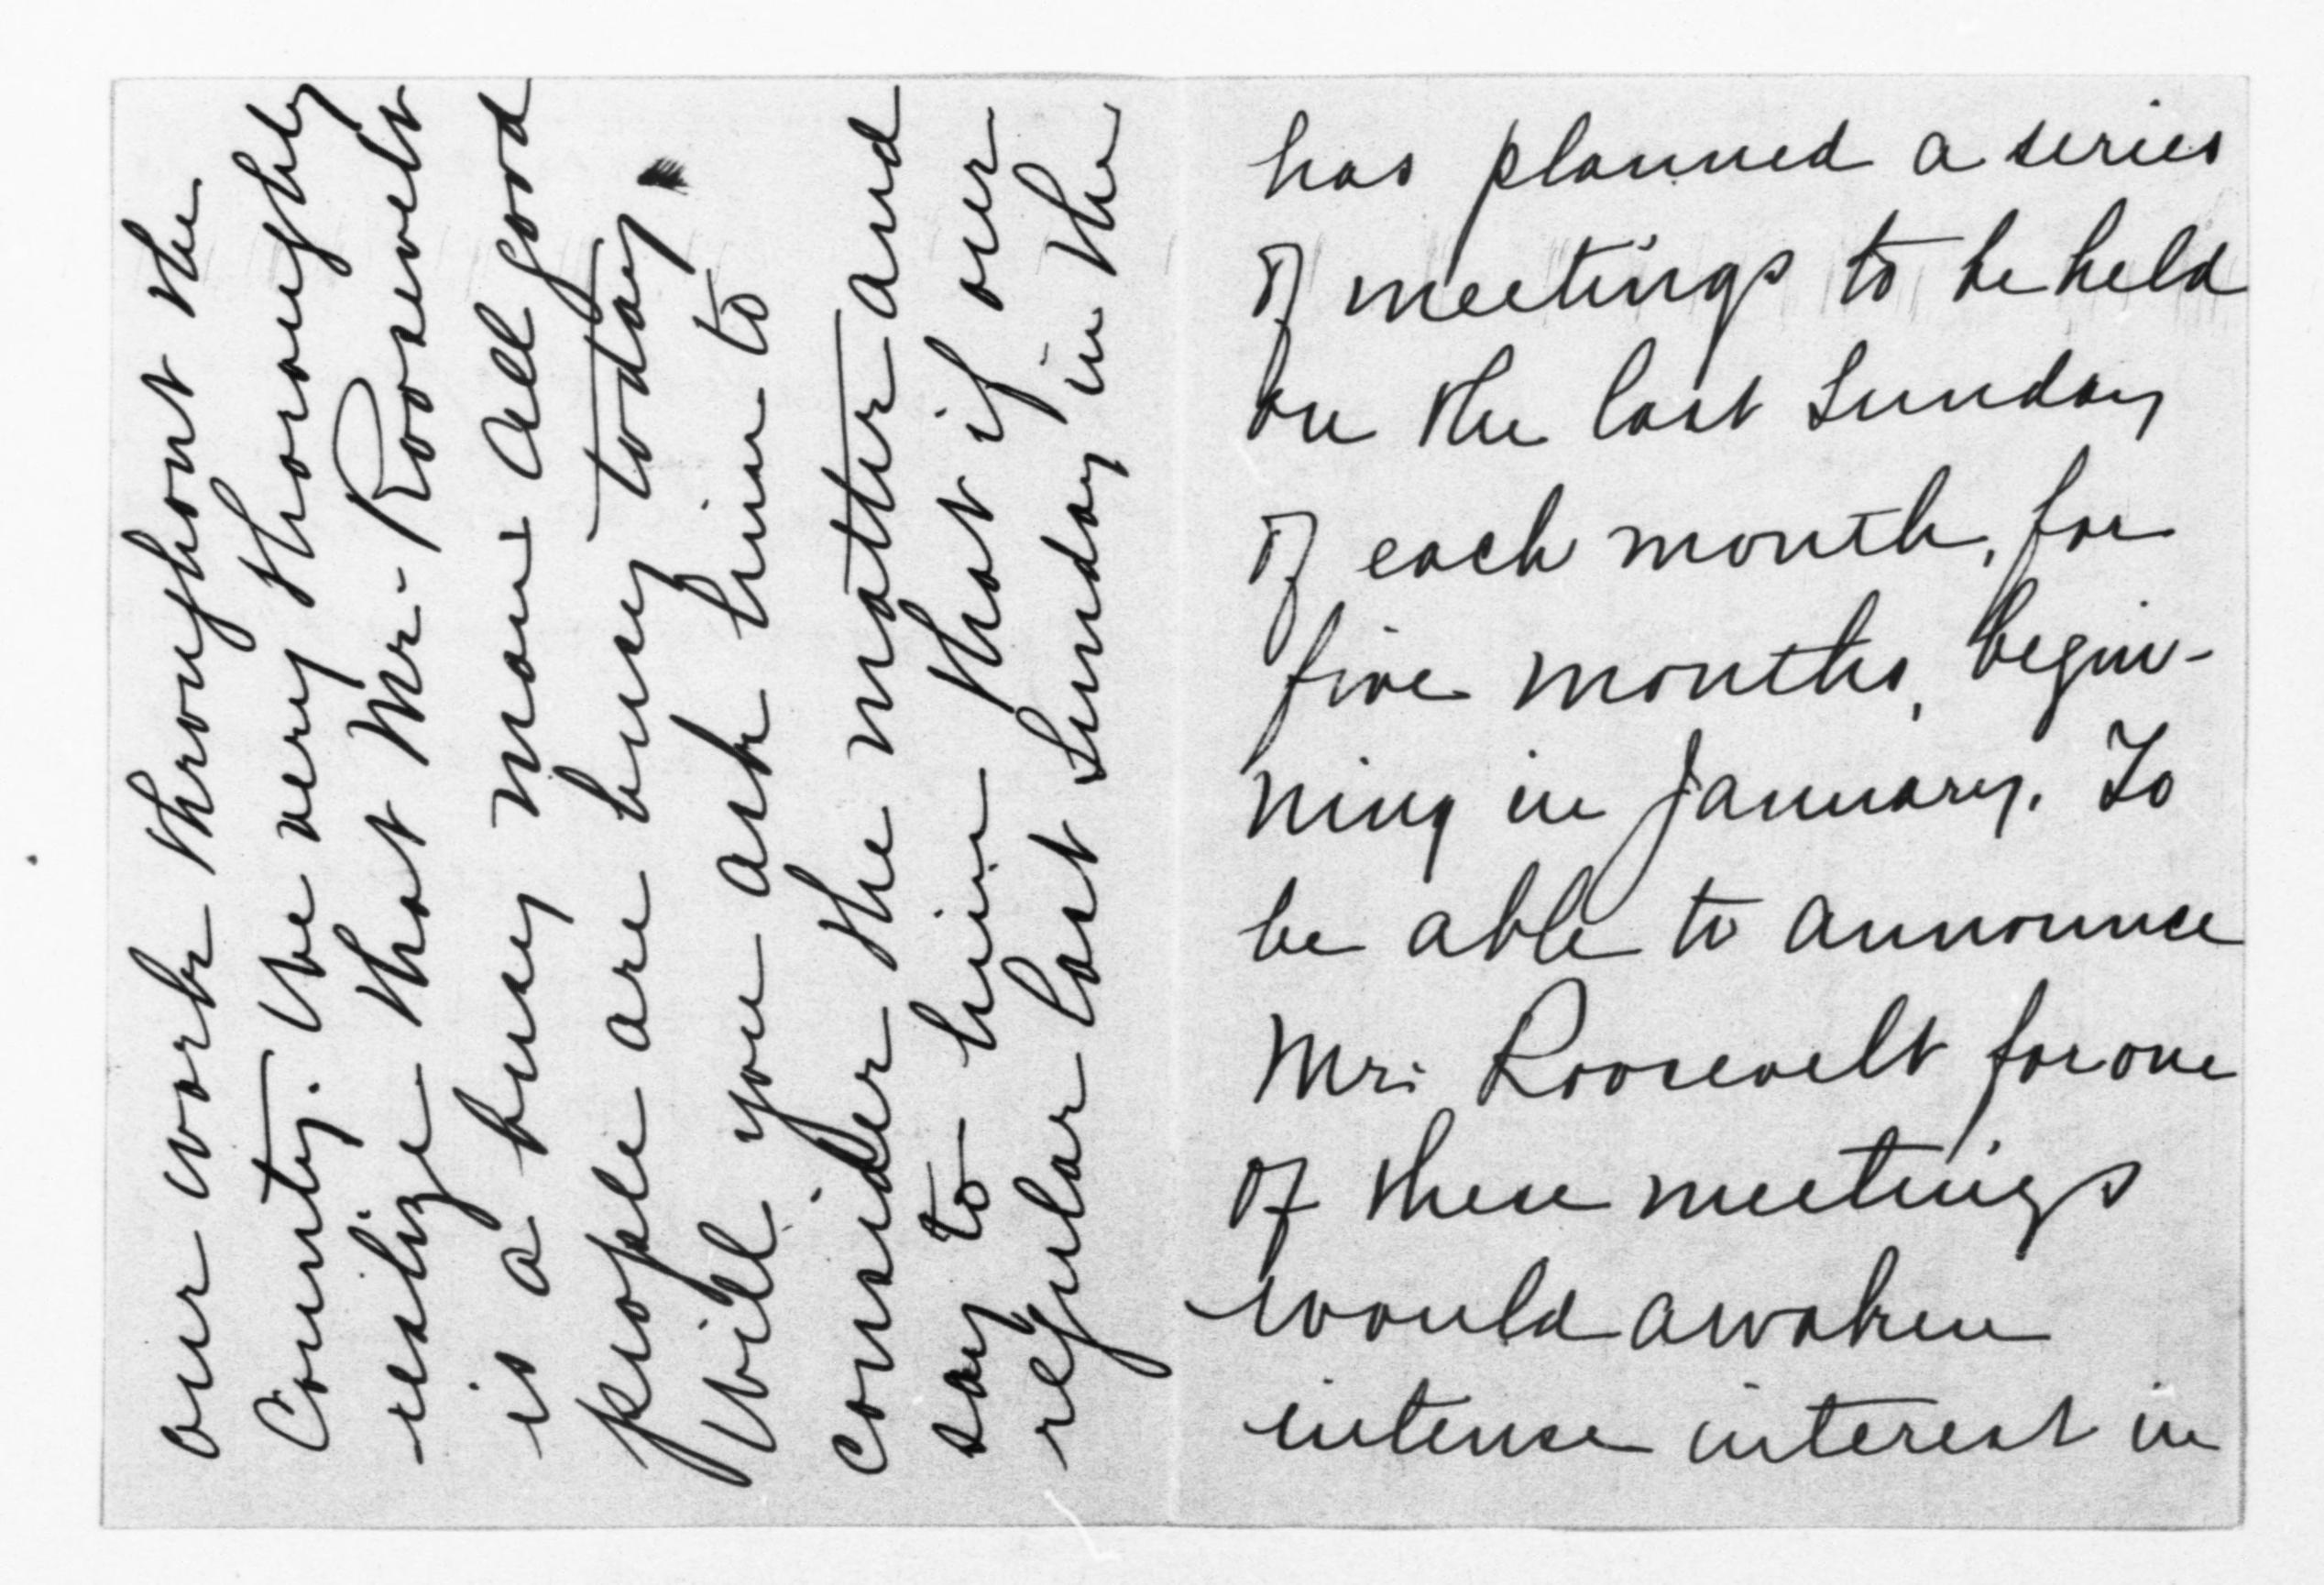 has planned a series
of meetings to be held
on the last Sunday
of each month, for
five months, begin-
ning in January. To
be able to announce
Mr. Roosevelt for one
of these meetings
would awaken
intense interest in
our work throughout the
County. We very thoroughly
realize that Mr. Roosevelt
is a busy man. All good
people are busy today.
Will you ask him to
consider the matter and
say to him that if our
regular last Sunday in the